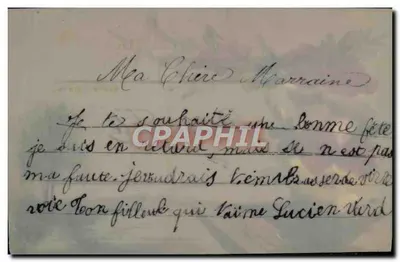 Ma Chère Marraine
Je te souhaite une bonne fête
CPARAMA
je suis en retard, mais se n'est pas
ma faute. je voudrais t'embrasser
voie ton filleul qui t'aime Lucien